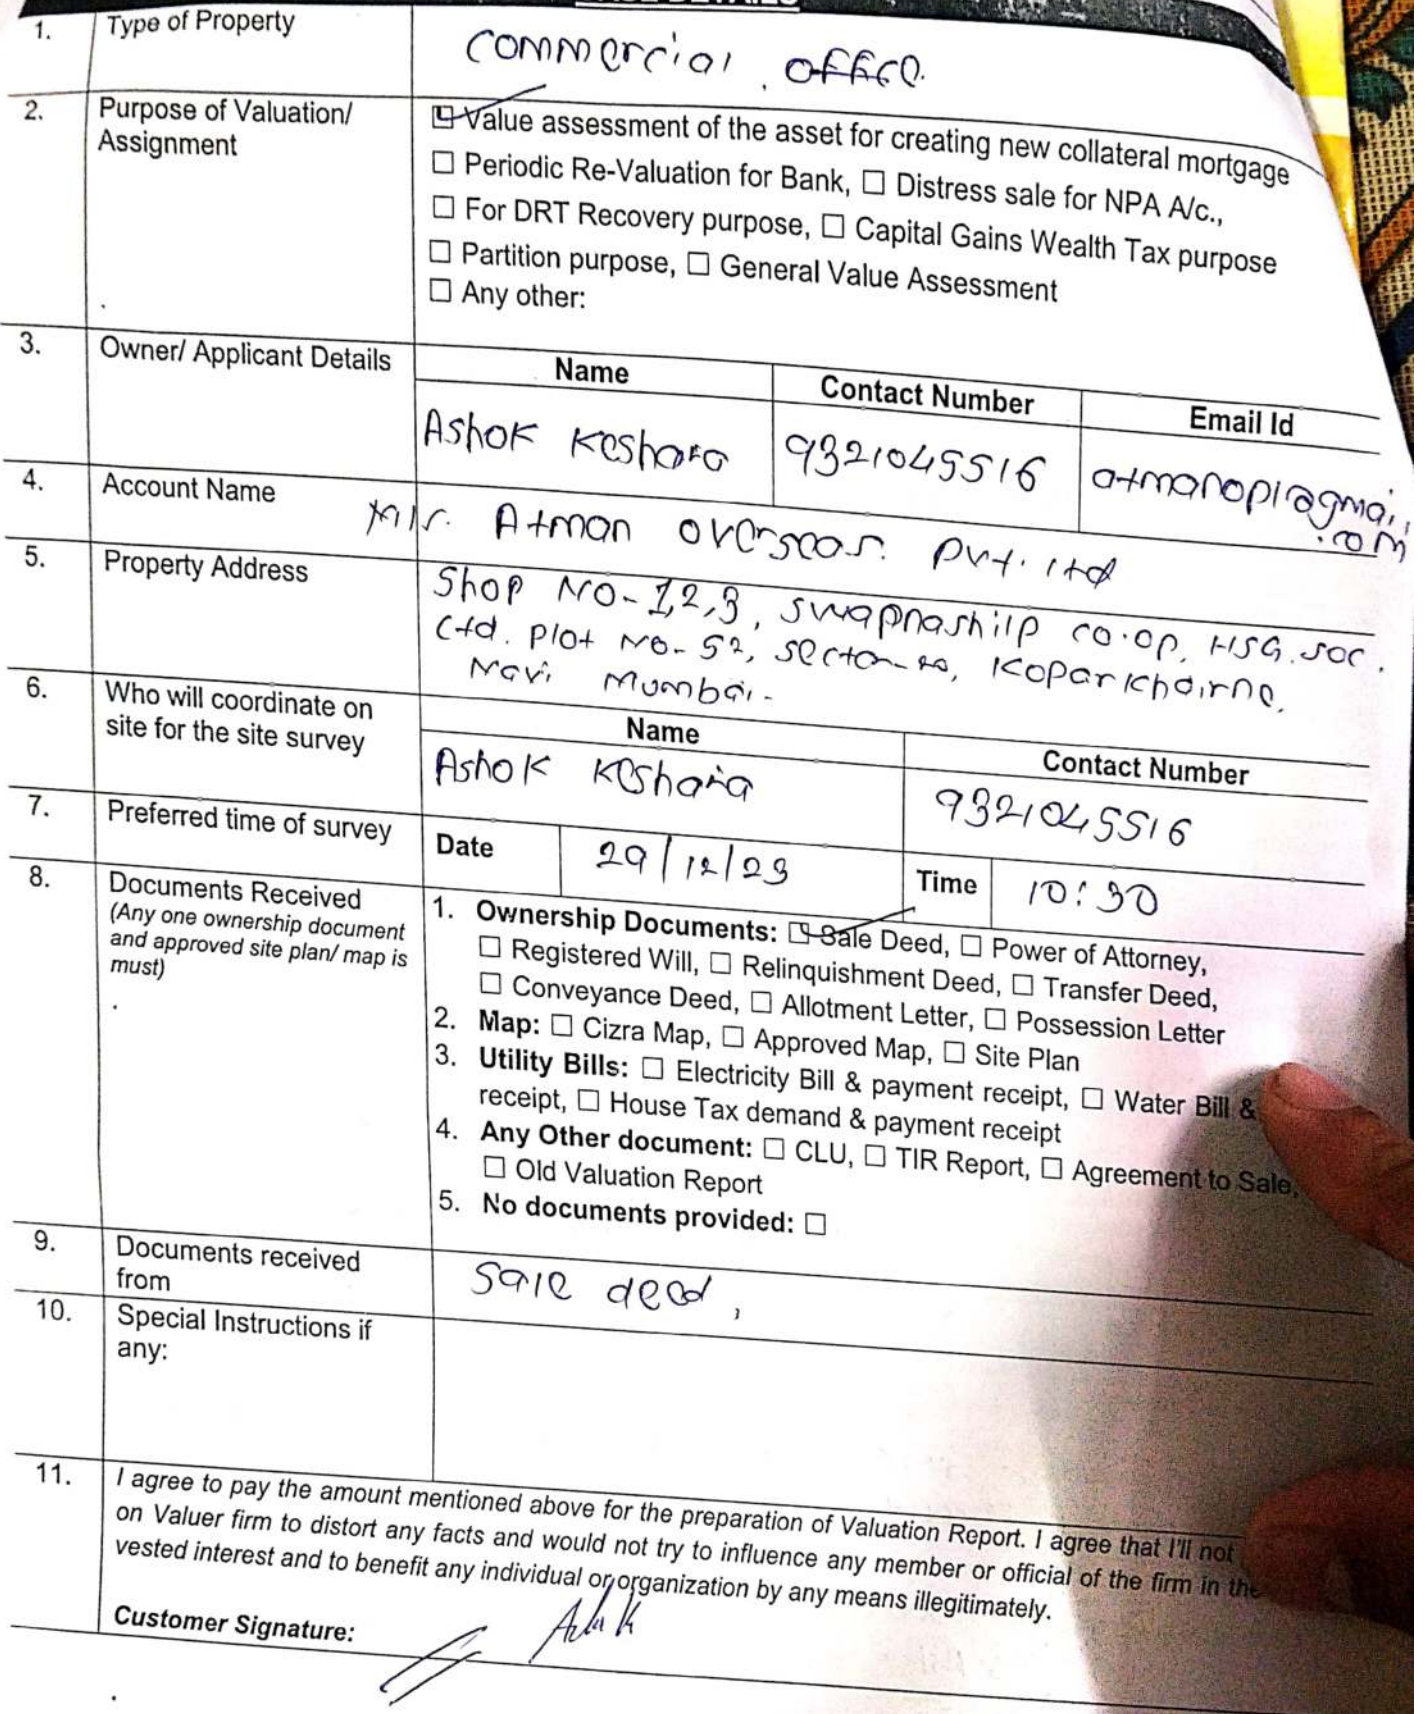 1. Type of Property
commercial office.
2. Purpose of Valuation/
Assignment
Value assessment of the asset for creating new collateral mortgage
☐ Periodic Re-Valuation for Bank, ☐ Distress sale for NPA A/c.,
☐ For DRT Recovery purpose, ☐ Capital Gains Wealth Tax purpose
☐ Partition purpose, ☐ General Value Assessment
☐ Any other:
3. Owner/ Applicant Details
Name Contact Number Email Id
Ashok Keshara 9321045516
.com
4. Account Name
Atman overseas. pvt. ltd
5. Property Address
Shop No-1,2,3, swapnashilp co.op. HSG. soc.
Ltd. plot No-52, sector- Koparkhairne,
Navi Mumbai-
6. Who will coordinate on
site for the site survey
Name Contact Number
Ashok Keshara 9321045516
7. Preferred time of survey
Date 29/12/23 Time 10:30
8. Documents Received
(Any one ownership document
and approved site plan/ map is
must)
1. Ownership Documents: Sale Deed, ☐ Power of Attorney,
☐ Registered Will, ☐ Relinquishment Deed, ☐ Transfer Deed,
☐ Conveyance Deed, ☐ Allotment Letter, ☐ Possession Letter
2. Map: ☐ Cizra Map, ☐ Approved Map, ☐ Site Plan
3. Utility Bills: ☐ Electricity Bill & payment receipt, ☐ Water Bill &
receipt, ☐ House Tax demand & payment receipt
4. Any Other document: ☐ CLU, ☐ TIR Report, ☐ Agreement to Sale,
☐ Old Valuation Report
5. No documents provided: ☐
9. Documents received
from
Sale deed,
10. Special Instructions if
any:
11. I agree to pay the amount mentioned above for the preparation of Valuation Report. I agree that I'll not
on Valuer firm to distort any facts and would not try to influence any member or official of the firm in the
vested interest and to benefit any individual or organization by any means illegitimately.
Customer Signature: